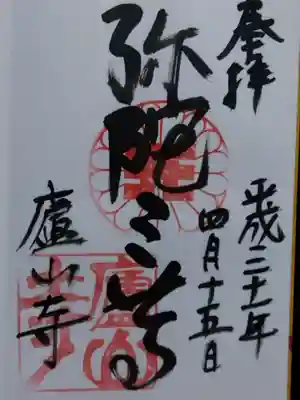 奉拝
平成三十一年
四月十五日
弥陀三尊
廬山寺